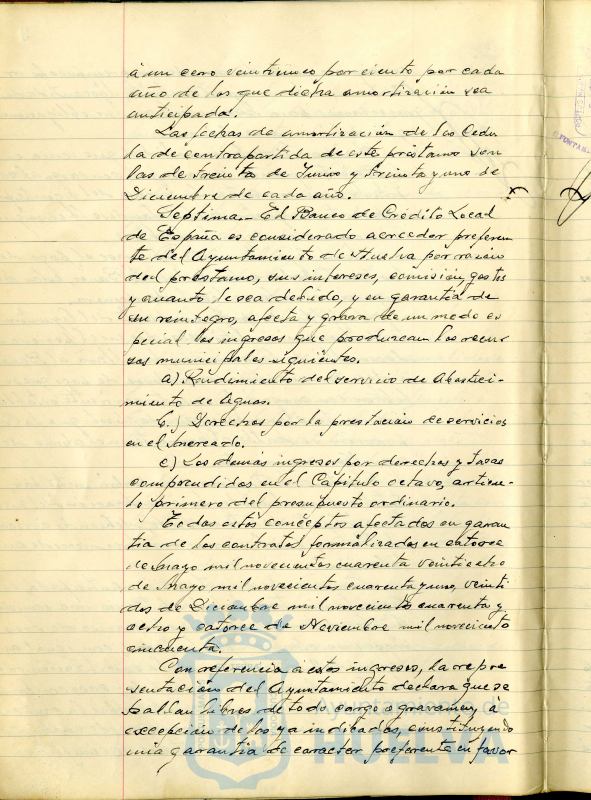 á un cero veinticinco por ciento por cada
año de los que dicha amortización sea
anticipada.
Las fechas de amortización de las Cedu
la de contrapartida de este préstamo son
las de treinta de Junio y treinta y uno de
Diciembre de cada año.
Septima.- El Banco de Crédito Local
de España es considerado acreedor preferen
te del Ayuntamiento de Huelva por razón
del prestamo, sus intereses, comisión, gastos
y cuanto le sea debido, y en garantía de
su reintegro, afecta y grava de un modo es
pecial los ingresos que produzcan los recur
sos municipales siguientes.
a) Rendimiento del servicio de Abasteci-
miento de Aguas.
b.) Derechos por la prestación de servicios
en el Mercado.
c) Los demás ingresos por derechos y tasas
comprendidos en el Capítulo octavo, artícu-
lo primero del presupuesto ordinario.
Todos estos conceptos afectados en garan
tia de los contratos formalizados en catorce
de Mayo mil novecientos cuarenta veintiocho
de Mayo mil novecientos cuarenta y uno, veinti
dos de Diciembre mil novecientos cuarenta y
ocho y catorce de Noviembre mil novecientos
cincuenta.
Con referencia a estos ingresos, la repre
sentación del Ayuntamiento declara que se
hallan libres de todo cargo o gravamen, á
excepción de los ya indicados, constituyendo
una garantía de caracter preferente en favor
Ayuntamiento de
HUELVA